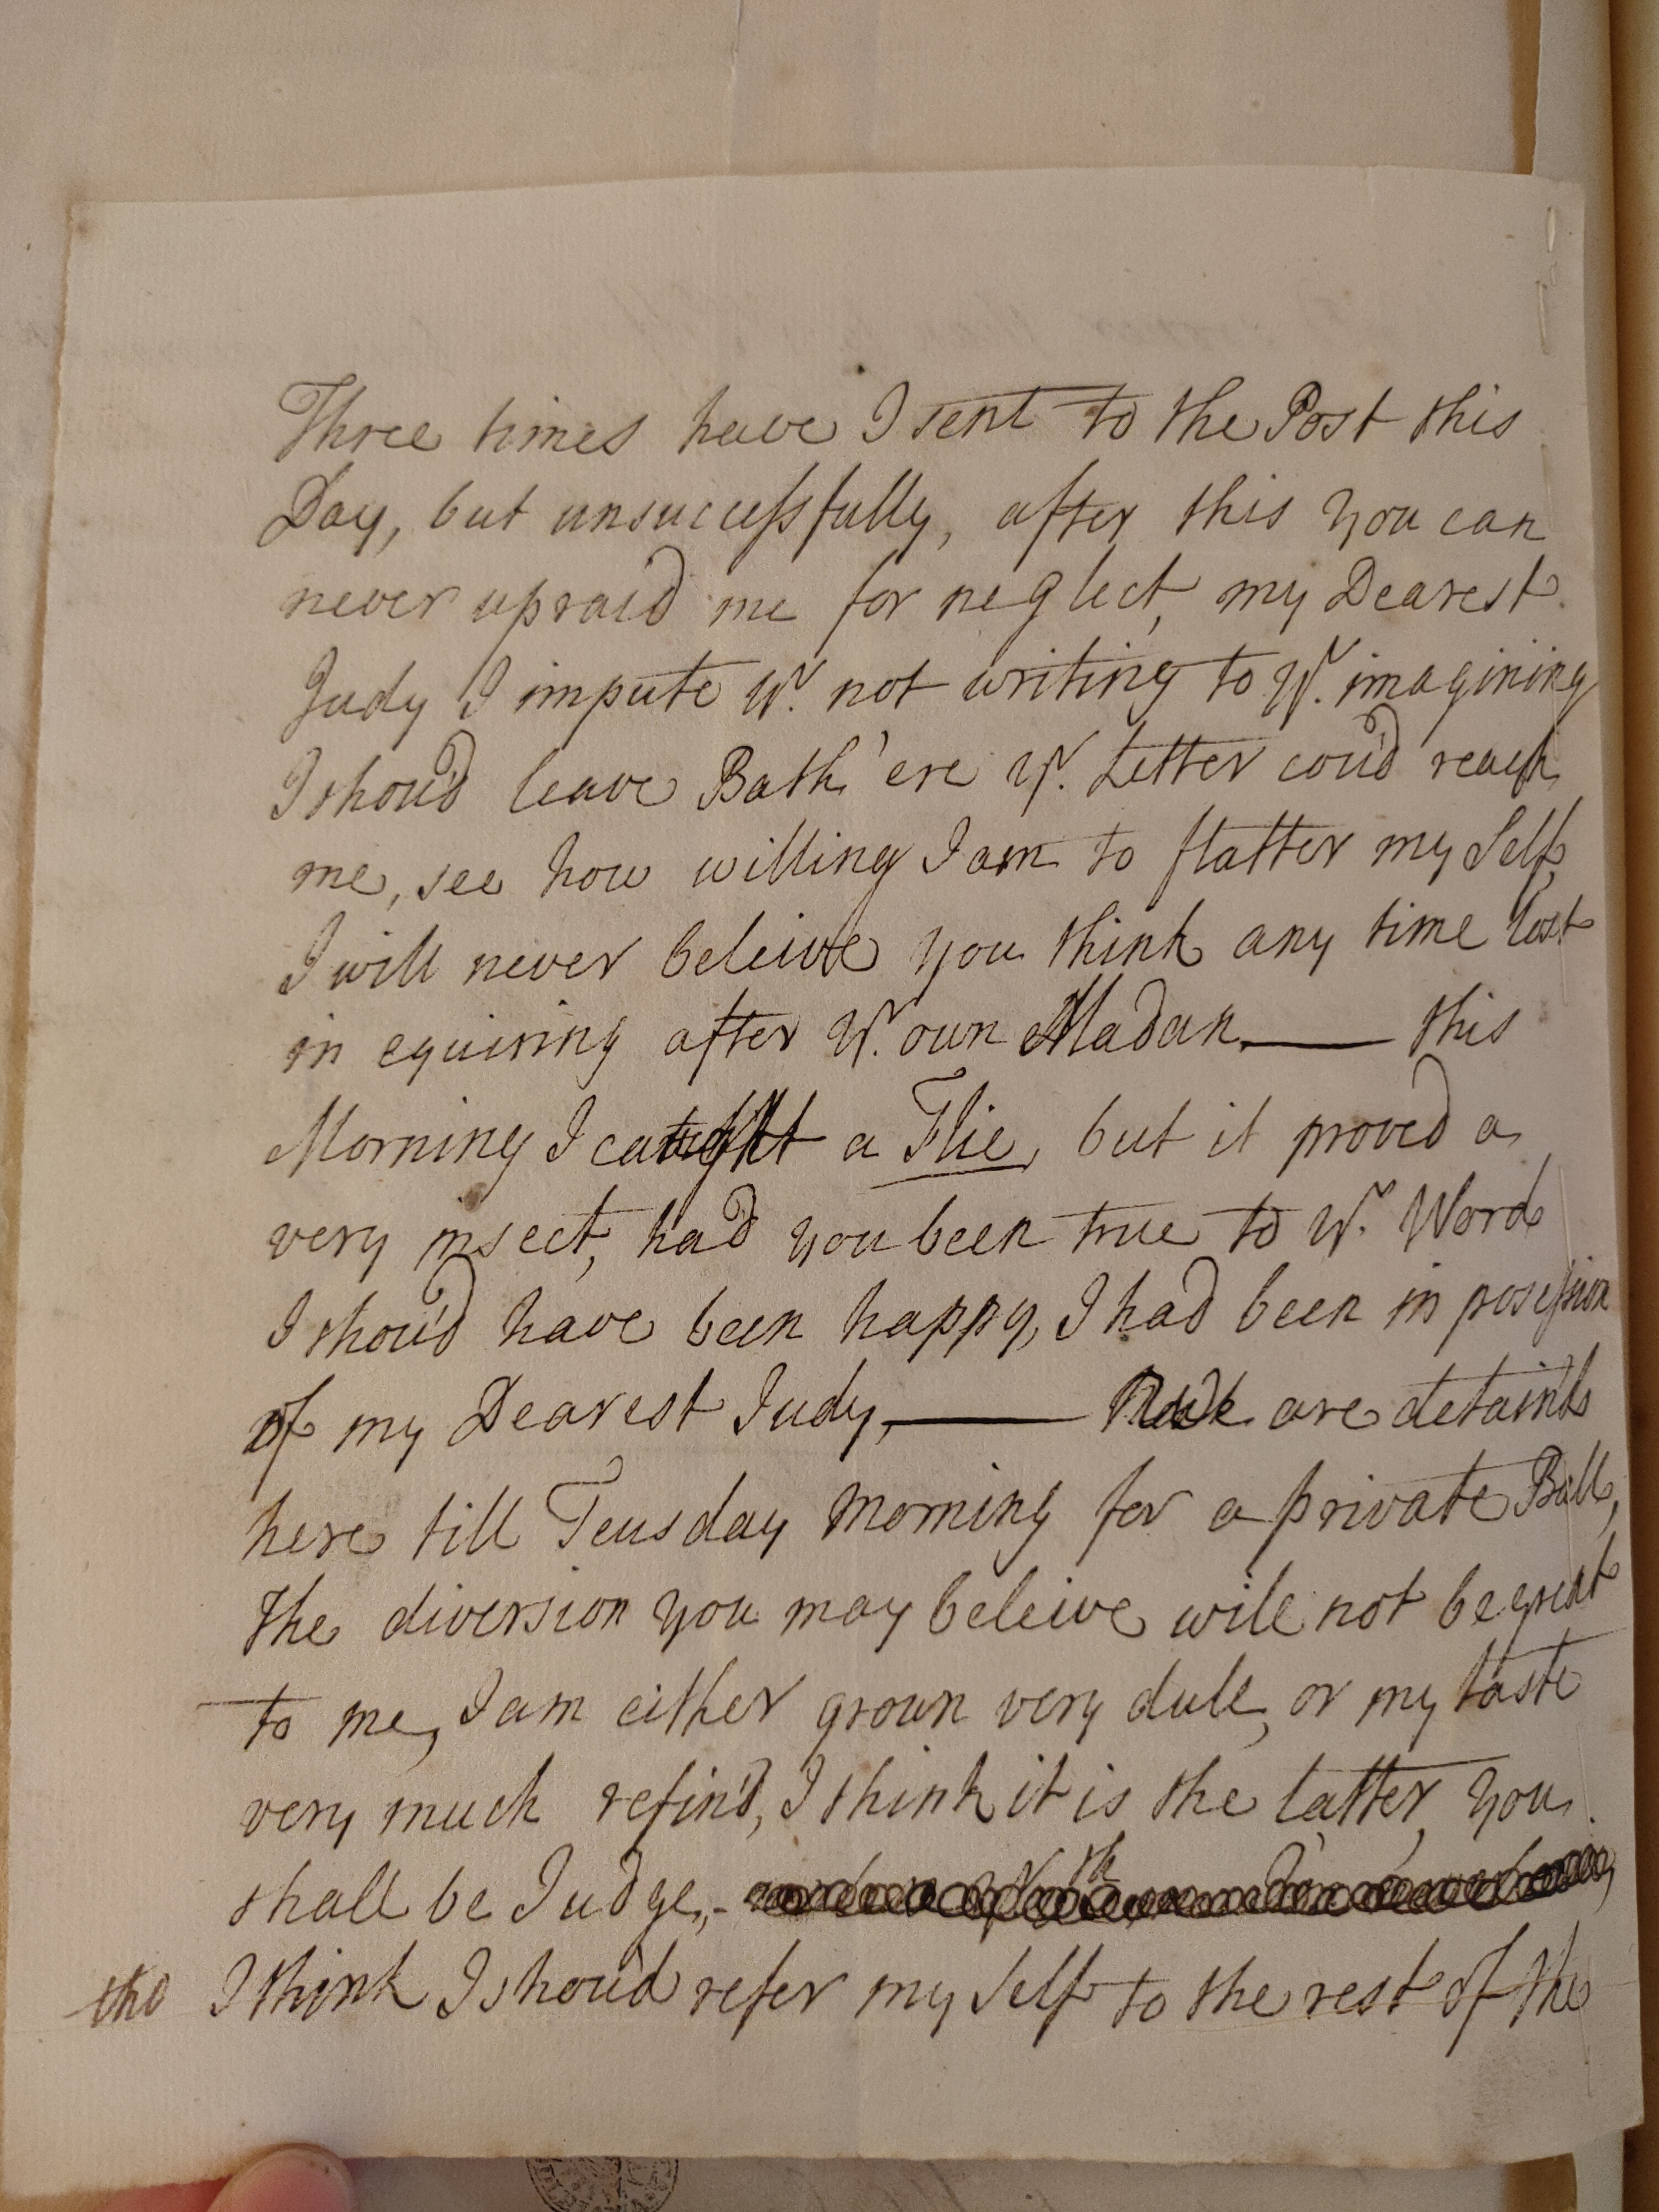 Three times have I sent to the Post this
Day, but unsuccessfully, after this you can
never upraid me for neglect, my Dearest
Judy I impute Yr. not writing to Yr. imagining
I shou'd leave Bath 'ere Yr. Letter cou'd reach
me, see how willing I am to flatter my Self,
I will never beleive you think any time lost
in equiring after Yr. own Madan, —— this
Morning I caught a Flie, but it proved a
very insect, had you been true to Yr. Word
I shou'd have been happy, I had been in posession
of my Dearest Judy, —— are detain'd
here till Teusday Morning for a private Ball,
the diversion you may beleive will not be great
to me, I am either grown very dull, or my taste
very much refin'd, I think it is the latter, you
shall be Judge,
tho I think I shou'd refer my Self to the rest of the